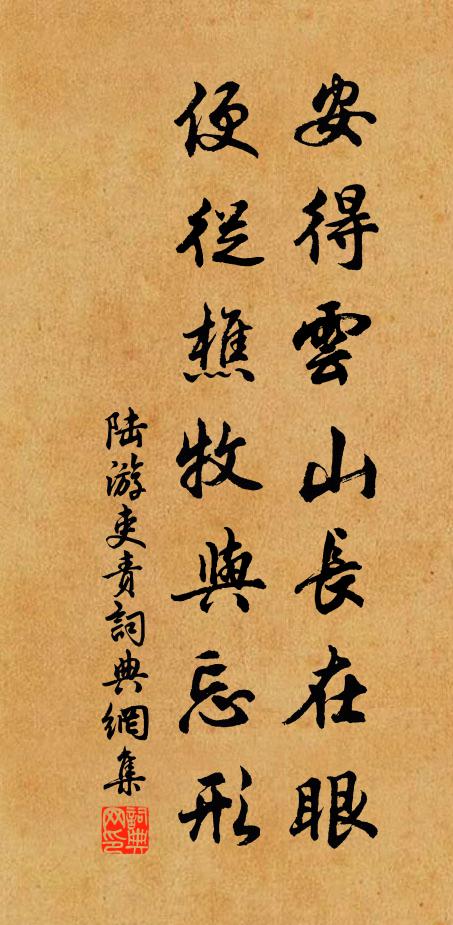 安得雲山長在眼
便從樵牧與忘形
陆游吏責詞典網集
詞典網印